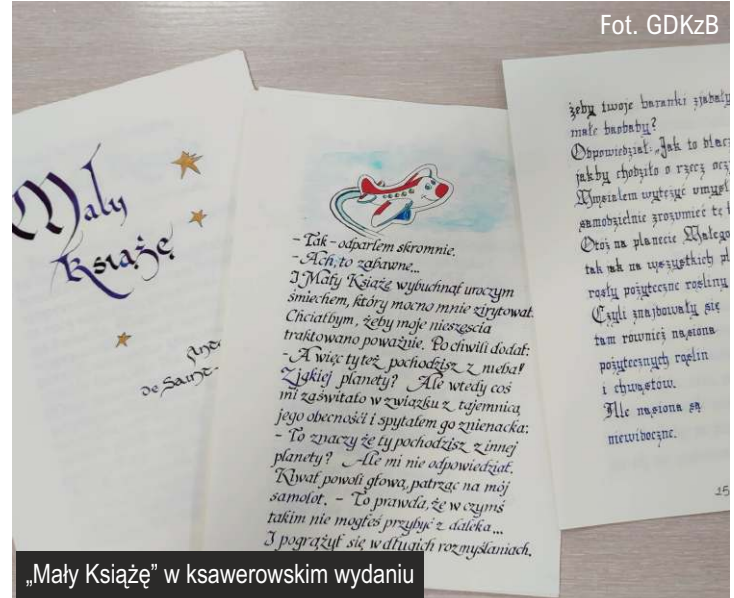 Fot. GDKzB
Mały
Książę
de Saint-
- Tak - odparłem skromnie.
- Ach, to zabawne...
I Mały Książę wybuchnął uroczym
śmiechem, który mocno mnie zirytował.
Chciałbym, żeby moje nieszęścia
traktowano poważnie. Po chwili dodał:
- A więc ty też pochodzisz z nieba!
Z jakiej planety? Ale wtedy coś
mi zaświtało w związku z tajemnicą
jego obecności i spytałem go znienacka:
- To znaczy że ty pochodzisz z innej
planety? Ale mi nie odpowiedział.
Kiwał powoli głową, patrząc na mój
samolot. - To prawda, że w czymś
takim nie mogłeś przybyć z daleka...
I pogrążył się w długich rozmyślaniach.
żeby twoje baranki zjadały
małe baobaby?
Odpowiedział: „Jak to dlacz
jakby chodziło o rzecz oczy
Musiałem wytężyć umysł
samodzielnie zrozumieć tę
Otóż na planecie Małego
tak jak na wszystkich pl
rosły pożyteczne rośliny
Czyli znajdowały się
tam również nasiona
pożytecznych roślin
i chwastów.
Ale nasiona są
niewidoczne.
15
„Mały Książę” w ksawerowskim wydaniu